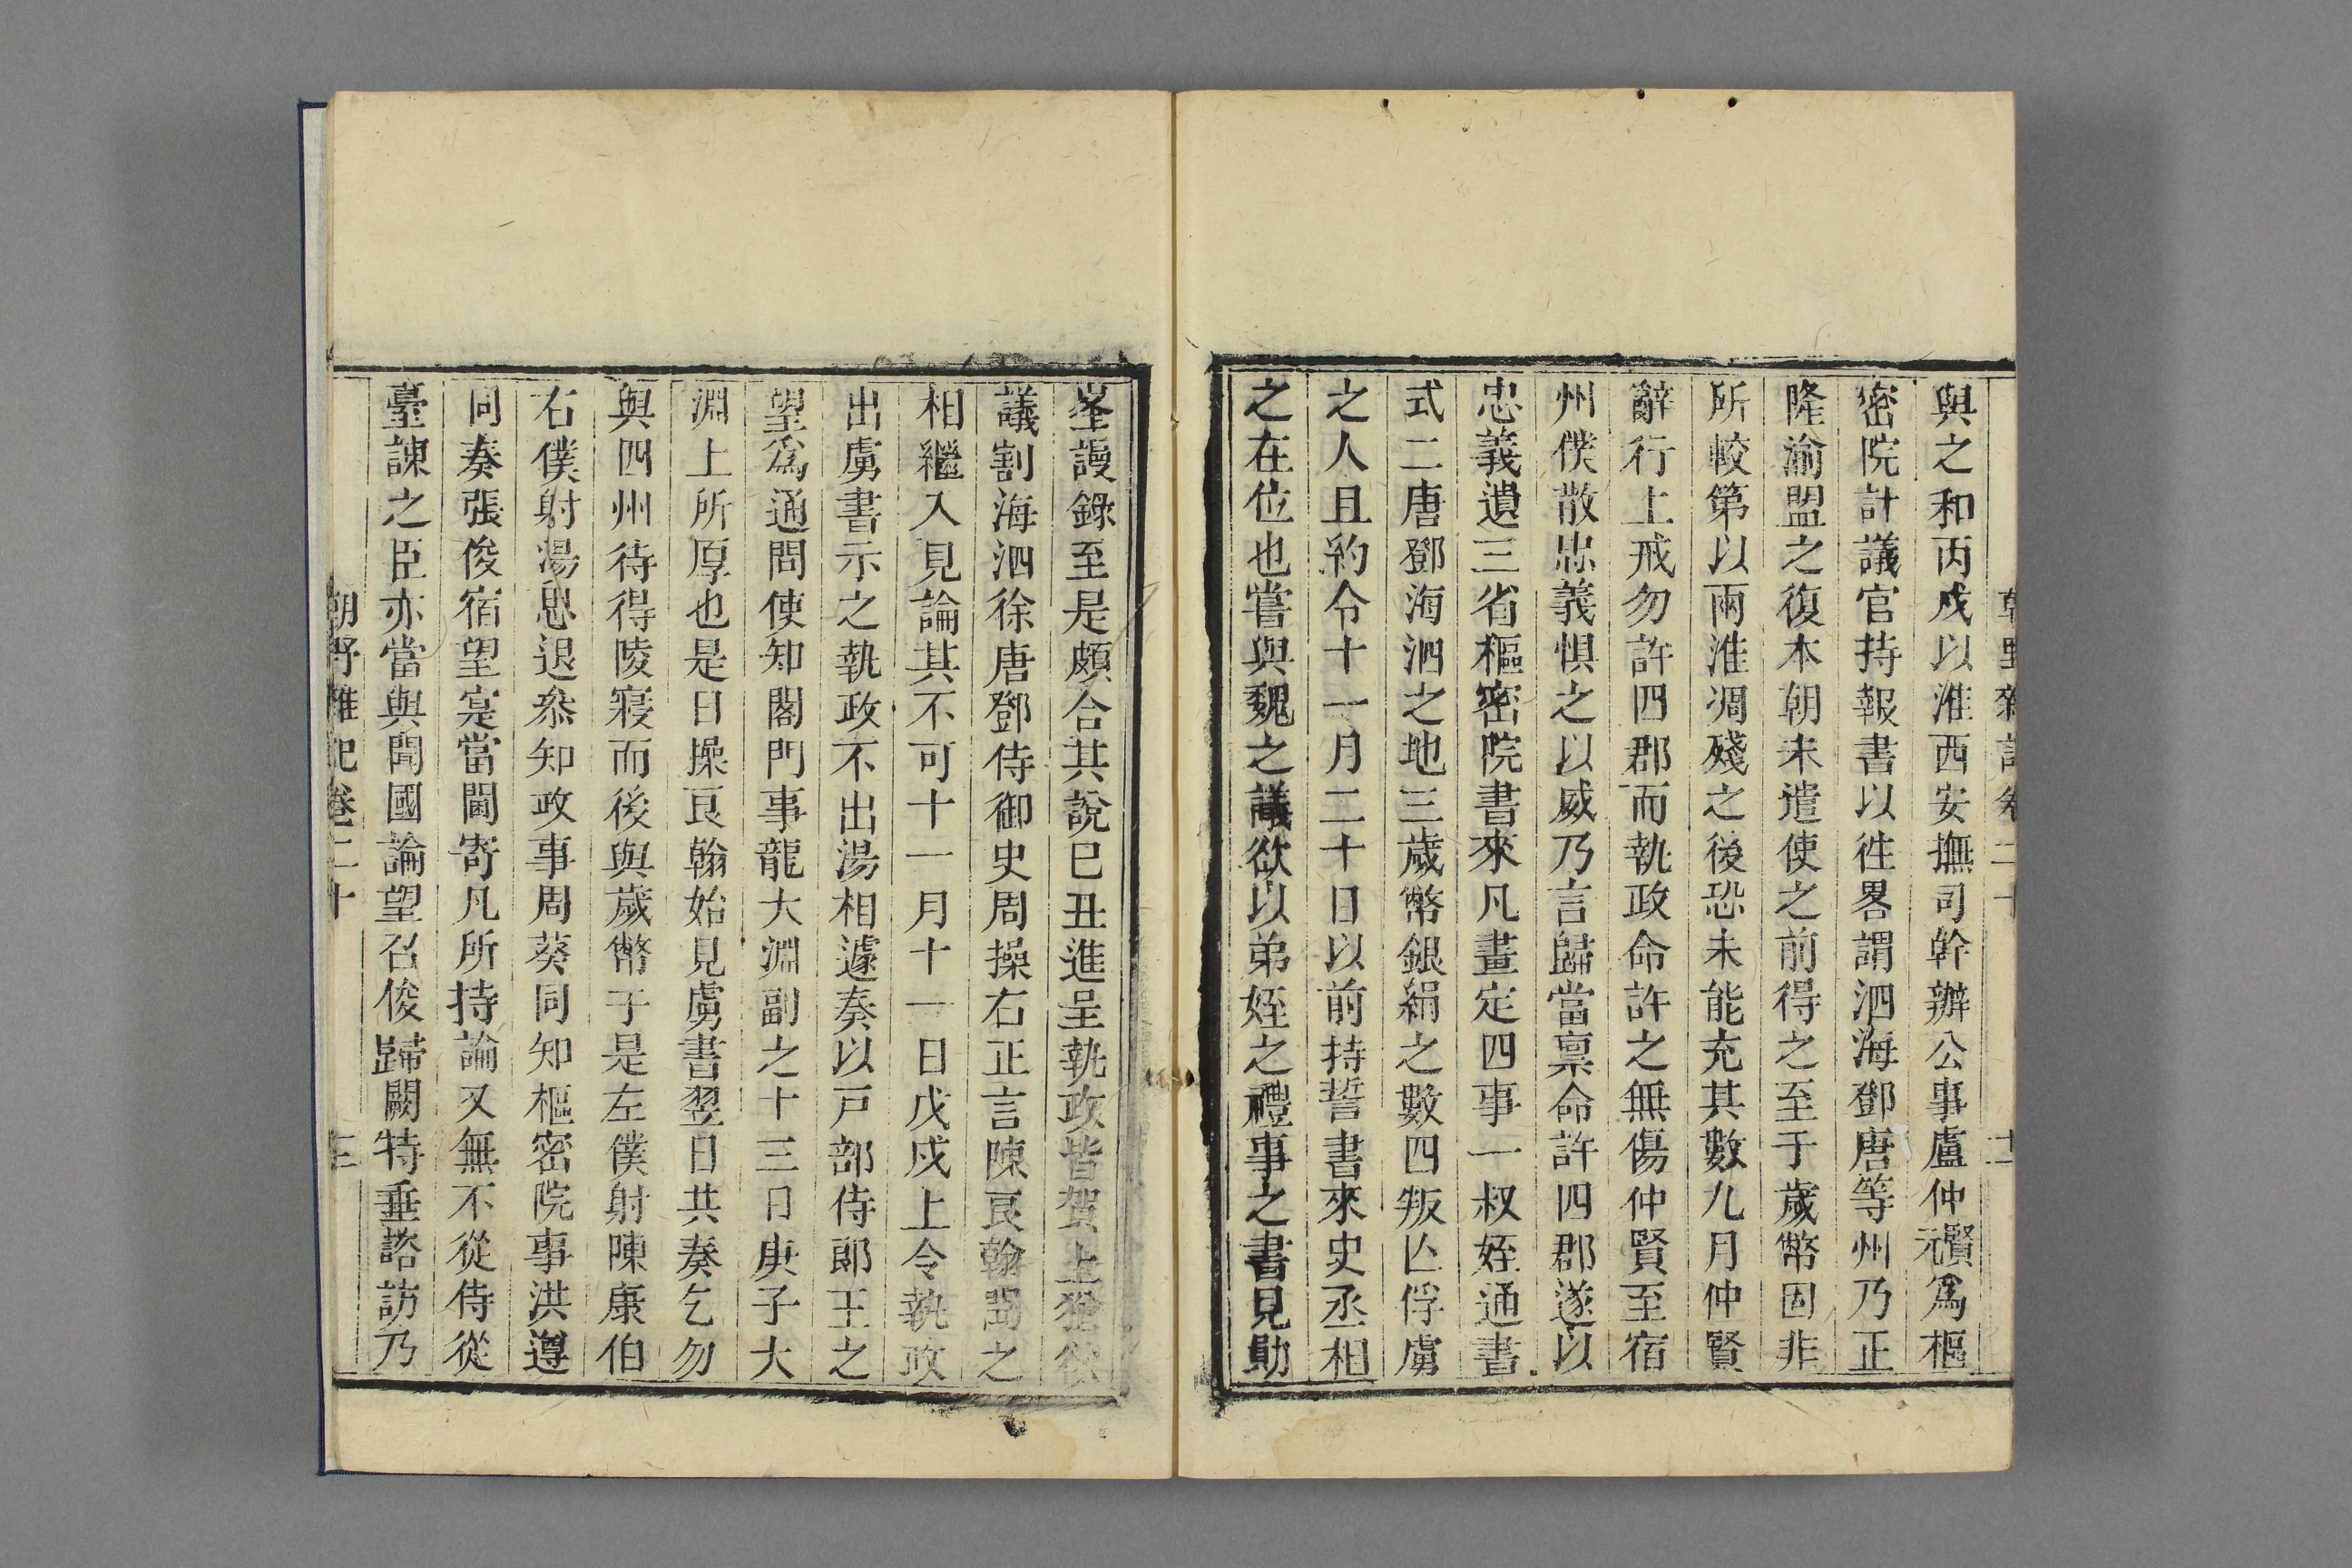 與之和丙戌以淮西安撫司幹辦公事盧仲賢元爲樞
密院計議官持報書以徃畧謂泗海鄧唐等州乃正
隆渝盟之復本朝未遣使之前得之至于歲幣固非
所較第以兩淮凋殘之後恐未能充其數九月仲賢
辭行上戒勿許四郡而執政命許之無傷仲賢至宿
州僕散忠義惧之以威乃言歸當禀命許四郡遂以
忠義遺三省樞密院書來凡畫定四事一叔姪通書
式二唐鄧海泗之地三歲幣銀絹之數四叛亾俘虜
之人且約令十一月二十日以前持誓書來史丞相
之在位也嘗與魏之議欲以弟姪之禮事之書見勛
朝野雜記卷二十 十一
峯謾錄至是頗合其說巳丑進呈執政皆賀上獨欲
議割海泗徐唐鄧侍御史周操右正言陳良翰 之
相繼入見論其不可十一月十一日戊戍上令執政
出虜書示之執政不出湯相遽奏以戸部侍郎王之
望爲通問使知閣門事龍大淵副之十三日庚子大
淵上所厚也是日操良翰始見虜書翌日共奏乞勿
與四州待得陵寢而後與歲幣于是左僕射陳康伯
右僕射湯思退叅知政事周葵同知樞密院事洪遵
同奏張俊宿望寔當閫寄凡所持論又無不從侍從
臺諫之臣亦當與聞國論望召俊歸闕特垂諮訪乃
朝野雜記卷二十